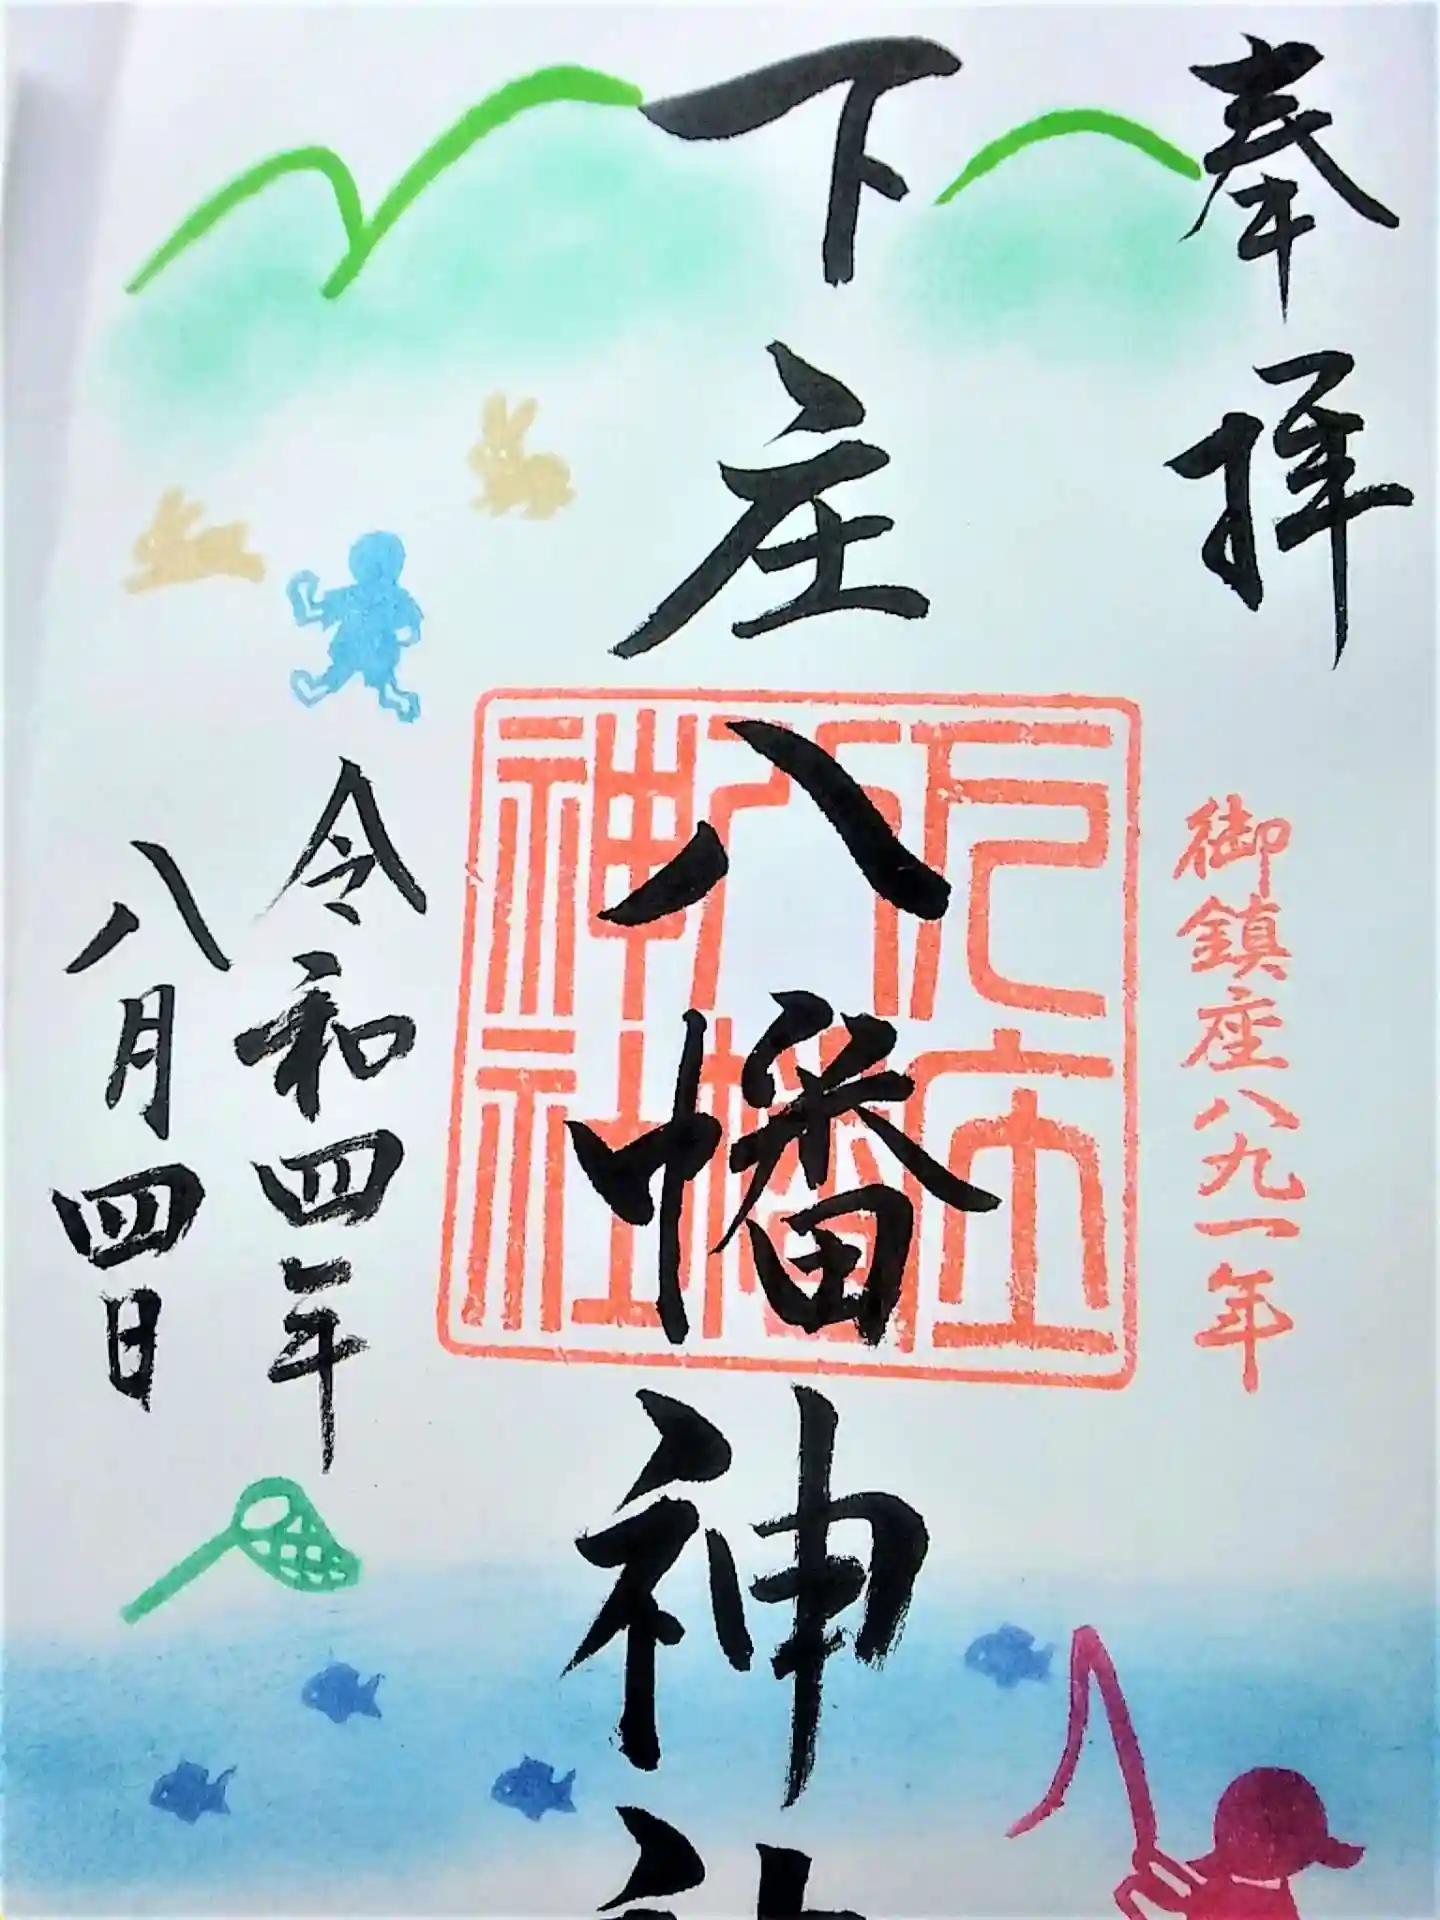 奉拝
御鎮座八九一年
下庄八幡神社
下庄
八幡
神社
令和四年
八月四日